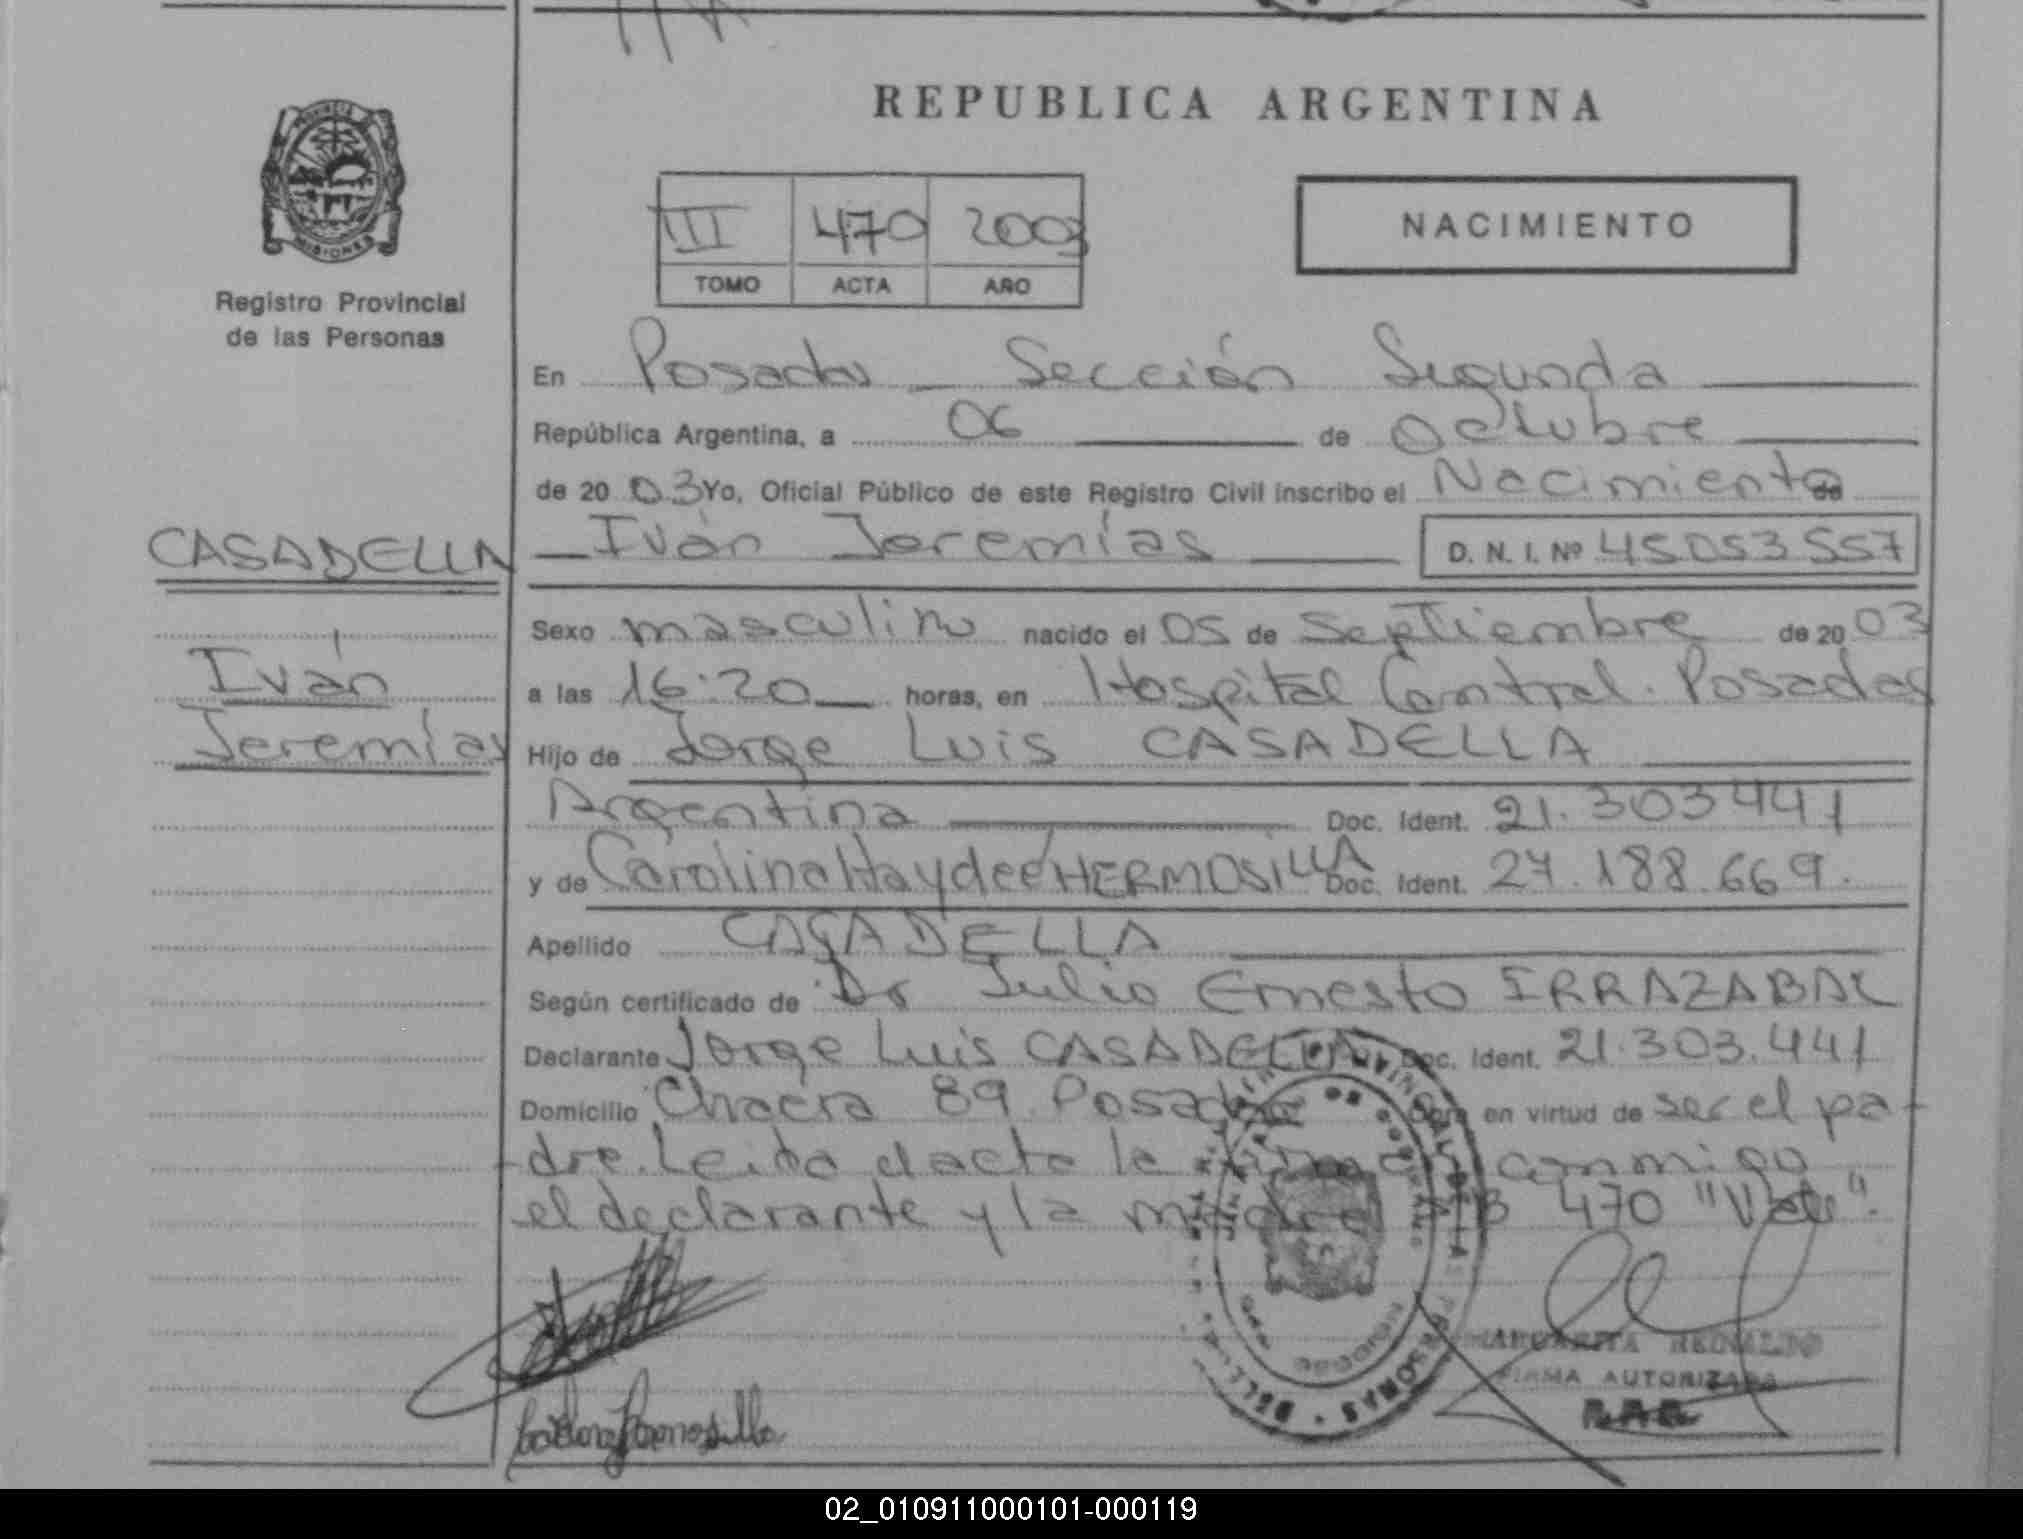 REPUBLICA ARGENTINA
PROVINCIA DE
MISIONES
Registro Provincial
de las Personas
III 470 2003
TOMO ACTA AÑO
NACIMIENTO
En Posadas Sección Segunda
República Argentina, a 06 de Octubre
de 20 03 Yo, Oficial Público de este Registro Civil inscribo el Nacimiento de
Iván Jeremías D. N. I. Nº 45053557
CASADELLA
Iván
Jeremías
Sexo masculino nacido el 05 de Septiembre de 20 03
a las 16:20 horas, en Hospital Central. Posadas
Hijo de Jorge Luis CASADELLA
Argentina Doc. Ident. 21.303441
y de Carolina Haydeé HERMOSILLA Doc. Ident. 27.188.669.
Apellido CASADELLA
Según certificado de Dr Julio Ernesto IRRAZABAL
Declarante Jorge Luis CASADELLA Doc. Ident. 21.303.441
Domicilio Chacra 89 Posadas Obra en virtud de ser el pa-
dre. Leída el acta la firman conmigo
el declarante y la madre 470 "Vale".
MARGARITA REINALDO
FIRMA AUTORIZADA
02_010911000101-000119